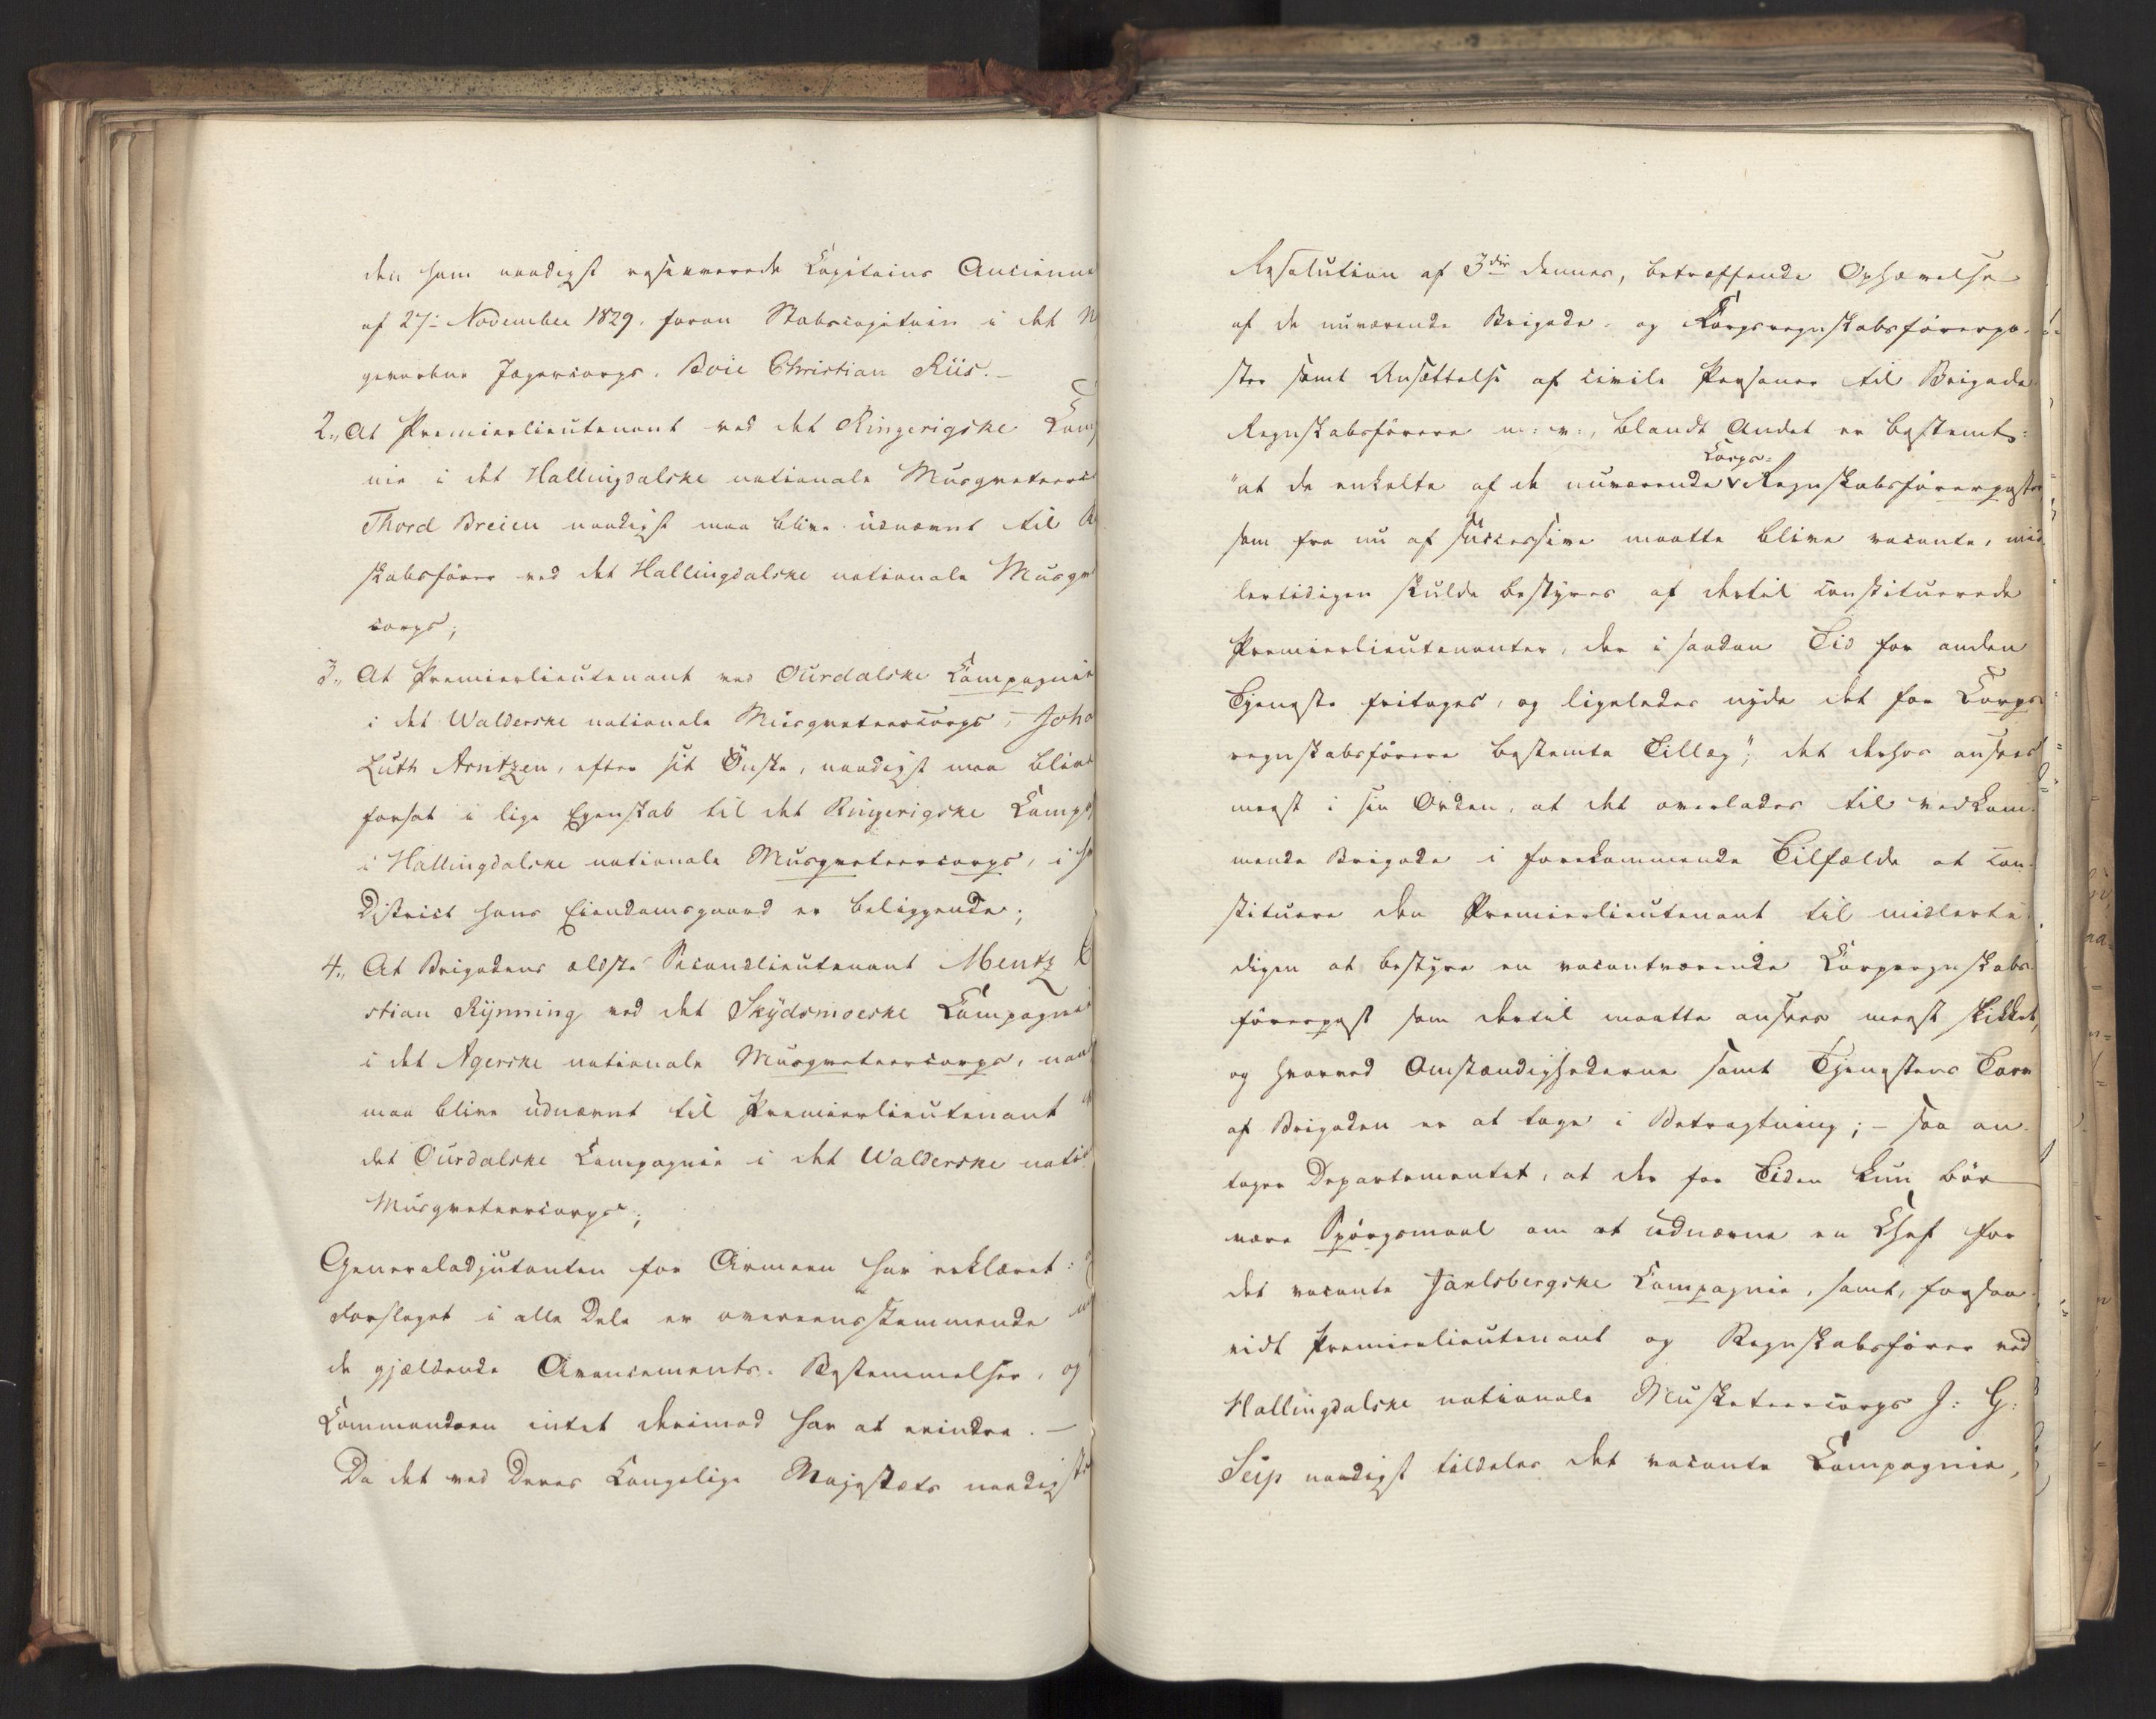 den ham naadigst reserverede Capitains Ancienne
af 27de November 1829, foran Stabscapitain i det N
gevorbne Jægercorps, Boie Christian Riis.-
2., At Premierlieutenant ved det Ringerigske Comp
nie i det Hallingdalske nationale Musqueteerc
Thord Breien naadigst maa blive udnævnt til R
skabsfører ved det Hallingdalske nationale Musque
corps;
3., At Premierlieutenant ved Ourdalske Compagnie
i det Walderske nationale Musqueteercorps, Joha
Luth Arntzen, efter sit Önske, naadigst maa blive
forsat i lige Egenskab til det Ringerigske Compa
i Hallingdalske nationale Musqueteercorps, i h
District hans Eiendomsgaard er beliggende;
4., At Brigadens ældste Secondlieutenant Mentz C
stian Rynning ved det Skydsmoeske Compagnie
i det Agerske nationale Musqueteercorps, naad
maa blive udnævnt til Premierlieutenant
det Ourdalske Compagnie i det Walderske natio
Musqueteercorps;
Generaladjutanten for Armeen har erklæret:
Forslaget i alle Dele er overeensstemmende
de gjældende Avancements-Bestemmelser, og
Commandoen intet derimod har at erindre. -
Da det ved Deres Kongelige Majestæts naadigste
Resolution af 3die dennes, betræffende Ophævelse
af de nuværende Brigade- og Korpsregnskabsförerpo-
ster samt Ansættelse af civile Personer til Brigade
Regnskabsförere m: v:, blandt Andet er bestemt:
Corps-
"at de enkelte af de nuværende Regnskabsförerposter
som fra nu af successive maatte blive vacante, mid
lertidigen skulde bestyres af dertil constituerede
Premierlieutenanter, der i saadan Tid for anden
Tjeneste fritages, og ligeledes nyde det for Corps
regnskabsförere bestemte Tillæg"; det derhos ansees
meest i sin Orden, at det overlades til vedkom-
mende Brigade i forekommende Tilfælde at con-
stituere den Premierlieutenant til midlerti-
digen at bestyre en vacantværende Corpsregnskabs-
förerpost som dertil maatte ansees meest skikket,
og hvorved Omstændighederne samt Tjenestens Tarv
af Brigaden er at tage i Betragtning; - saa an-
tager Departementet, at der for Tiden kun bör
være Spörgsmaal om at udnævne en Chef for
det vacante Jarlsbergske Compagnie, samt, forsaa-
vidt Premierlieutenant og Regnskabsförer ved
Hallingdalske nationale Musketeercorps J: G:
Seip naadigst tildeles det vacante Compagnie,